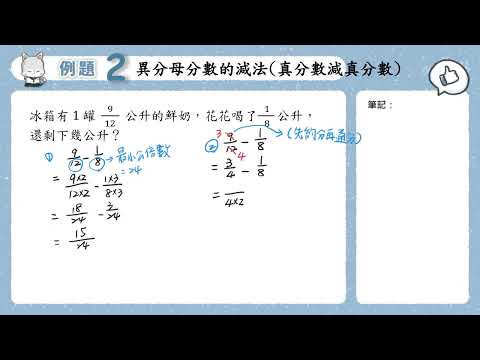 例題 2 異分母分數的減法(真分數減真分數)
冰箱有1罐 9/12 公升的鮮奶，花花喝了 1/8 公升，
還剩下幾公升？
筆記：
① 9/12 - 1/8 → 最小公倍數 = 24
= 9×2/12×2 - 1×3/8×3
= 18/24 - 3/24
= 15/24
② 3 9/12 4 - 1/8 (先約分再通分)
= 3/4 - 1/8
= /4×2